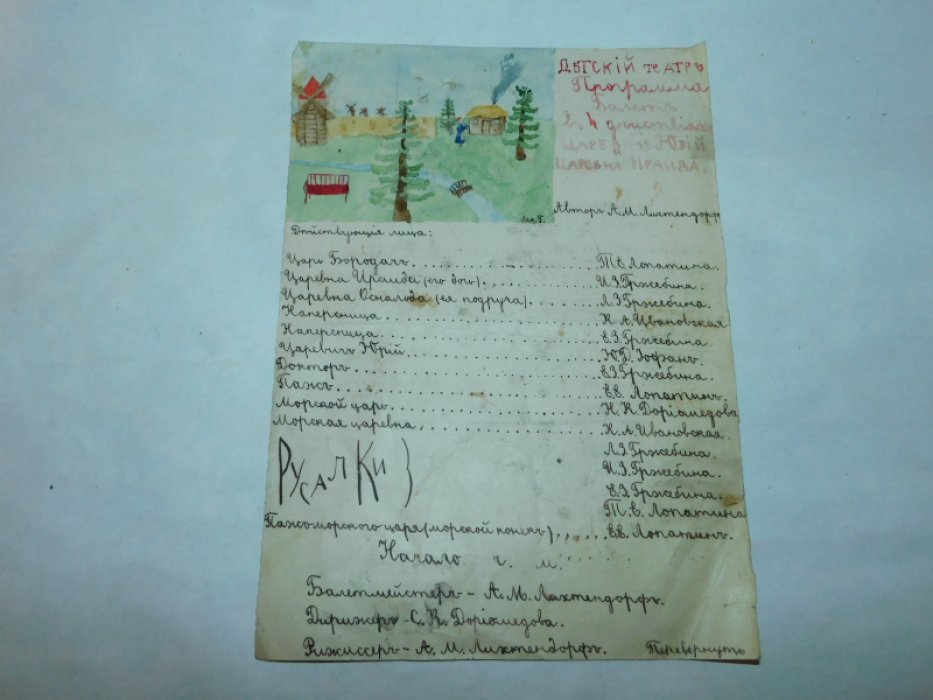 ДѢТСКІЙ ТЕАТРЪ
Программа
Балетъ
въ 4 дѣйствіяхъ
ЦАРЕВИЧЪ ЮРІЙ
ЦАРЕВНА ИРАИДА.
Авторъ А.М. Лихтендорфъ
Дѣйствующія лица:
Царь Бородачъ. Т.Е. Лопатина.
Царевна Ираида (его дочь). И.З. Гржебина.
Царевна Осналода (ея подруга). Л.З. Гржебина.
Наперсница. К.А. Ивановская
Наперсница. Е.З. Гржебина.
Царевичъ Юрій. Ю.Д. Іофанъ.
Докторъ. Е.З. Гржебина.
Пажъ. Е.В. Лопатинъ.
Морской царь. Н.К. Доріомедова
Морская царевна. К.А. Ивановская.
РУСАЛКИ } Л.З. Гржебина.
И.З. Гржебина.
Е.З. Гржебина.
Т.Е. Лопатина
Пажъ морского царя (морской конекъ). Е.В. Лопатинъ.
Начало ч. м.
Балетмейстеръ - А. М. Лихтендорфъ.
Дирижеръ - С. К. Доріомедова.
Рижиссеръ - А. М. Лихтендорфъ. Перевернуть